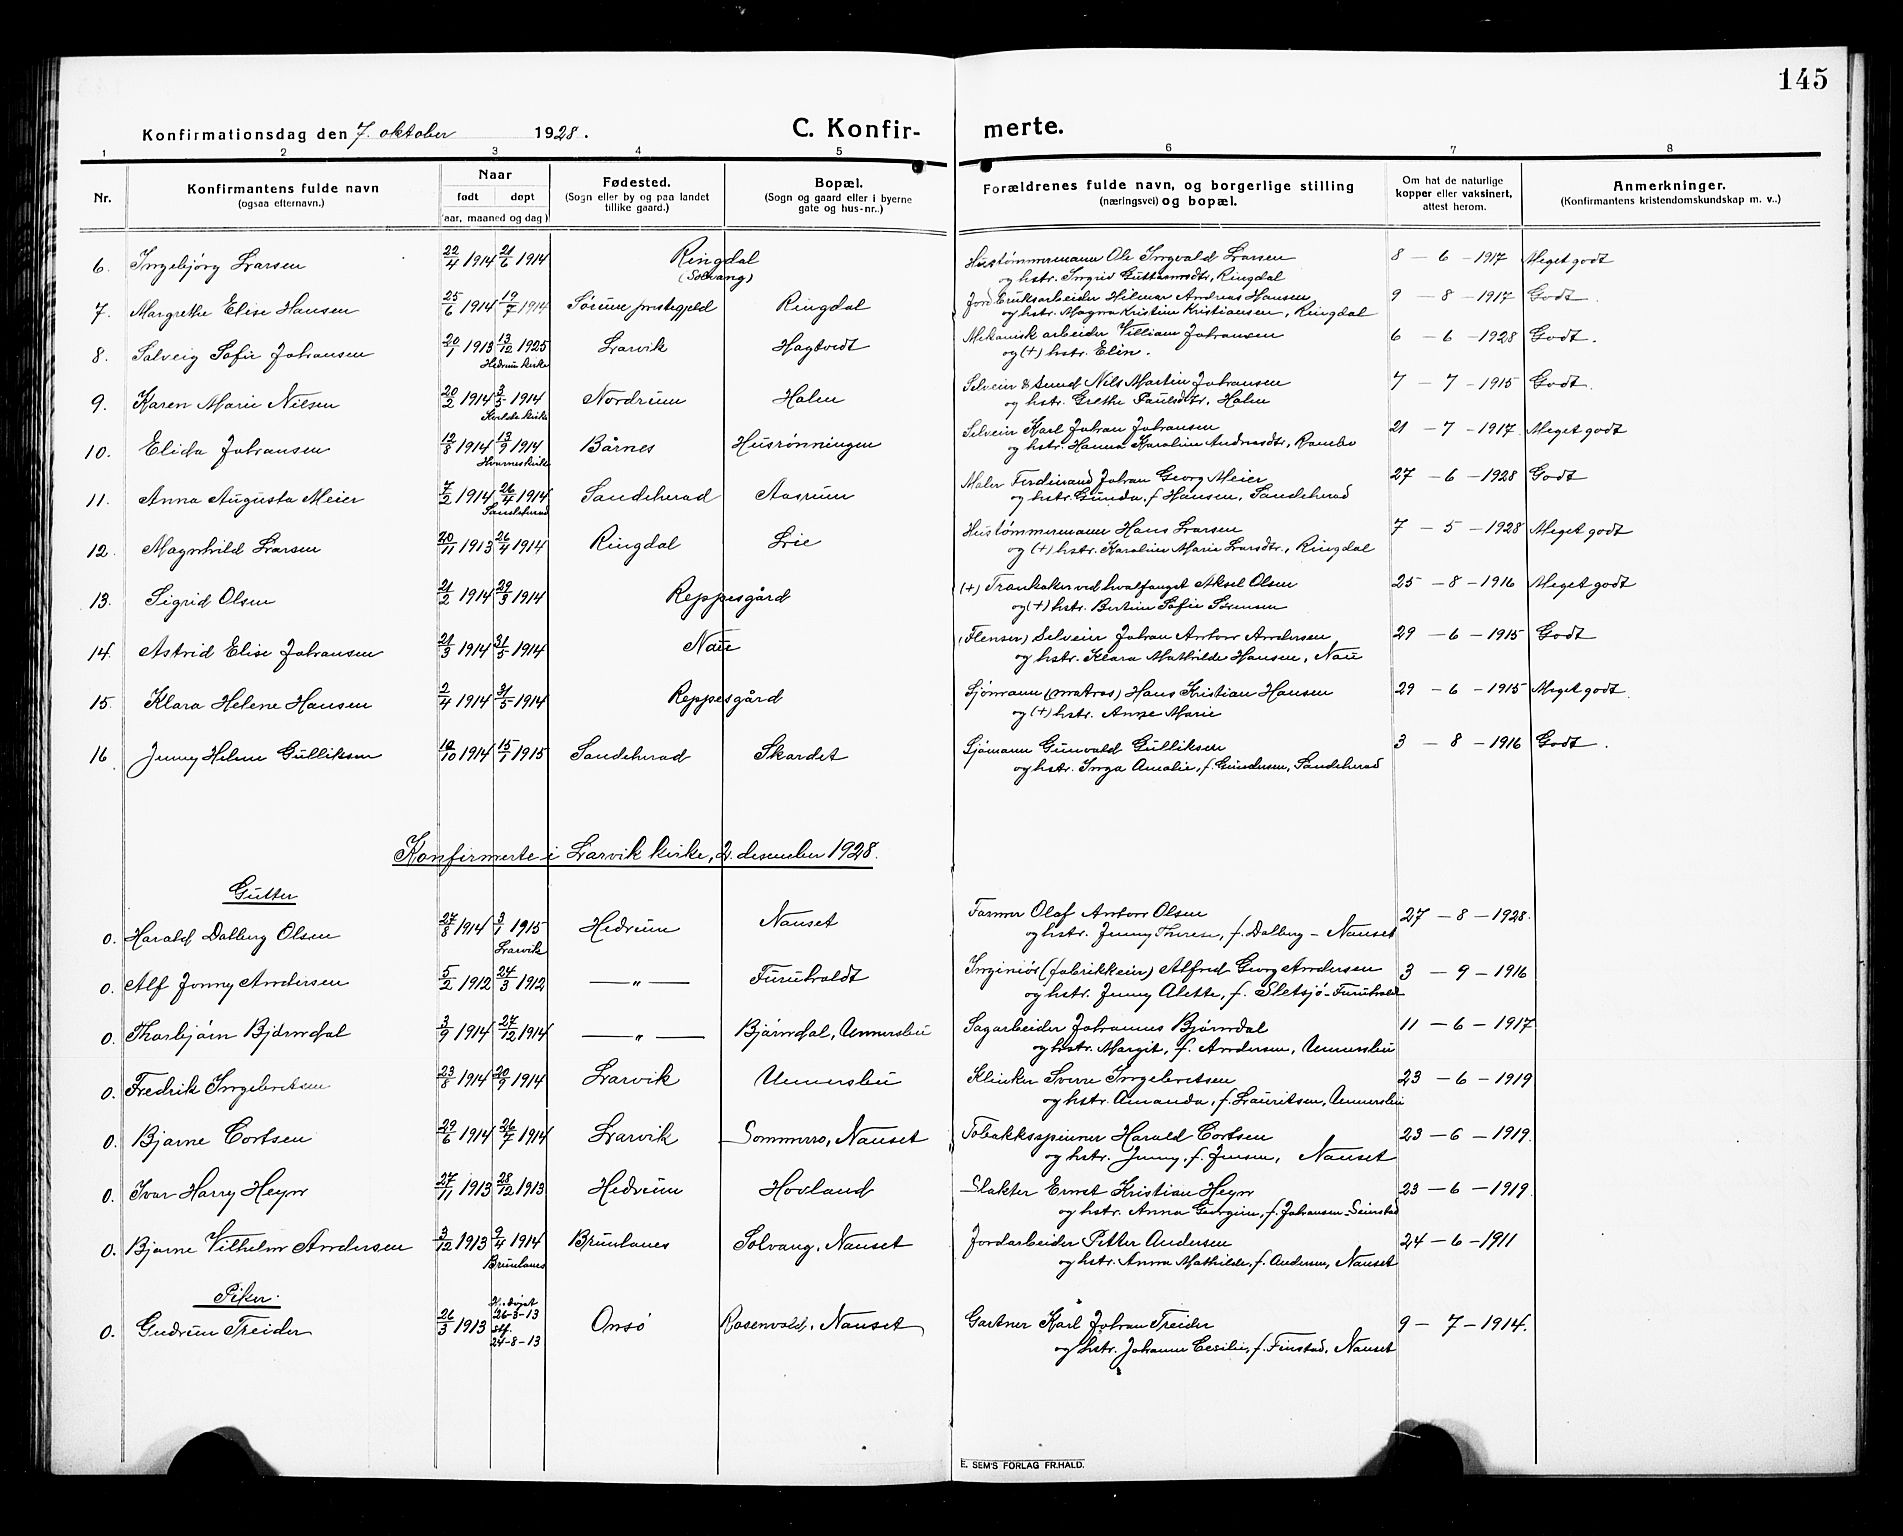 145
Konfirmationsdag den 7. oktober 1928. C. Konfir- merte.
1 2 3 4 5 6 7 8
Nr. Konfirmantens fulde navn (ogsaa efternavn.) Naar født døpt (aar, maaned og dag) Fødested. (Sogn eller by og paa landet tillike gaard.) Bopæl. (Sogn og gaard eller i byerne gate og hus-nr..) Forældrenes fulde navn, og borgerlige stilling (næringsvei) og bopæl. Om hat de naturlige kopper eller vaksinert, attest herom. Anmerkninger. (Konfirmantens kristendomskundskap m. v..)
6. Ingebjørg Larsen 22/4 1914 21/6 1914 Ringdal (Solvang) Hustømmermann Ole Ingvald Larsen 8 - 6 - 1917 Meget godt
og hstr. Ingrid Guttormsdtr, Ringdal
7. Margrethe Elise Hansen 25/6 1914 19/7 1914 Sørum prestegjeld Ringdal Jordbruksarbeider Hilmar Andreas Hansen 9 - 8 - 1917 Godt.
og hstr. Magna Kristine Kristiansen, Ringdal
8. Solveig Sofie Johansen 20/1 1913 13/12 1925 Larvik Hagtvedt Mekanisk arbeider William Johansen 6 - 6 - 1928 Godt.
Hedrum kirke og (+) hstr. Elin.
9. Karen Marie Nilsen 20/2 1914 3/5 1914 Nordrum Holm Selveier Nils Martin Johansen 7 - 7 - 1915 Godt.
Kvelde kirke og hstr. Grethe Paulsdtr, Holm
10. Elida Johansen 12/8 1914 13/9 1914 Bårnes Husrønningen Selveier Karl Johan Johansen 21 - 7 - 1917. Meget godt
Hvarnes kirke og hstr. Hanna Karoline Andreasdtr,
11. Anna Augusta Meier 7/2 1914 26/4 1914 Sandeherad Aasrum Maler Ferdinand Johan Georg Meier 27 - 6 - 1928 Godt
Sandeherad og hstr. Gunda, f. Hansen, Sandeherad
12. Magnhild Larsen 20/11 1913 26/4 1914 Ringdal Lie Hustømmermann Hans Larsen 7 - 5 - 1928 Meget godt
og (+) hstr. Karoline Marie Larsdtr., Ringdal
13. Sigrid Olsen 21/2 1914 29/3 1914 Reppesgård (+) Trankoker ved hvalfanget Aksel Olsen 25 - 8 - 1916 Meget godt
og (+) hstr. Bertine Sofie Sørensen
14. Astrid Elise Johansen 21/3 1914 31/5 1914 Naue (Flenser) Selveier Johan Anton Andersen 29 - 6 - 1915 Godt
og hstr. Klara Mathilde Hansen, Naue
15. Klara Helene Hansen 2/4 1914 31/5 1914 Reppesgård Sjømann (matros) Hans Kristian Hansen 29 - 6 - 1915 Meget godt.
og (+) hstr. Anne Marie
16. Jenny Helene Gulliksen 10/10 1914 15/1 1915 Sandeherad Skardet Sjømann Gunvald Gulliksen 3 - 8 - 1916 Godt.
og hstr. Inga Amalie, f. Gundersen, Sandeherad
Konfirmerte i Larvik kirke, 2. desember 1928.
Gutter
0. Harald Dalberg Olsen 27/8 1914 3/1 1915 Hedrum Nanset Farmer Olaf Anton Olsen 27 - 8 - 1928.
Larvik og hstr. Jenny Therese, f. Dalberg - Nanset
0. Alf Jonny Andersen 5/2 1912 24/3 1912 — " — Furuholdt Inginiør (fabrikkeier) Alfred Georg Andersen 3 - 9 - 1916
og hstr. Jenny Alette, f. Sletsjø - Furuholdt
0. Thorbjørn Bjørndal 3/9 1914 27/12 1914 — " — Bjørndal, Unnersbu Sagarbeider Johannes Bjørndal 11 - 6 - 1917
og hstr. Margit, f. Andersen, Unnersbu
0. Fredrik Ingebretsen 23/8 1914 20/9 1914 Larvik Unnersbu Klinker Sverre Ingebretsen 23 - 6 - 1919
og hstr. Amanda, f. Lauritsen, Unnersbu
0. Bjarne Cortsen 29/6 1914 26/7 1914 Larvik Sommerro, Nanset Tobakksspinner Harald Cortsen 23 - 6 - 1919.
og hstr. Jenny, f. Jensen, Nanset
0. Ivar Harry Heyn 27/11 1913 28/12 1913 Hedrum Hovland Slakter Ernst Kristian Heyn 23 - 6 - 1919.
og hstr. Anna Georgine, f. Johansen -
0. Bjarne Vilhelm Andersen 3/12 1913 9/4 1914 Brunlanes Solvang, Nanset Jordarbeider Petter Andersen 24 - 6 - 1911
Brunlanes og hstr. Anna Mathilde, f. Andersen, Nanset
Piker.
0. Gudrun Treider 26/3 1913 H. døpt 26-3-13 stf. 24-8-13 Onsø Rosenvold, Nanset Gartner Karl Johan Treider 9 - 7 - 1914.
og hstr. Johanne Cecilie, f. Finstad, Nanset
E. SEM'S FORLAG FR.HALD.